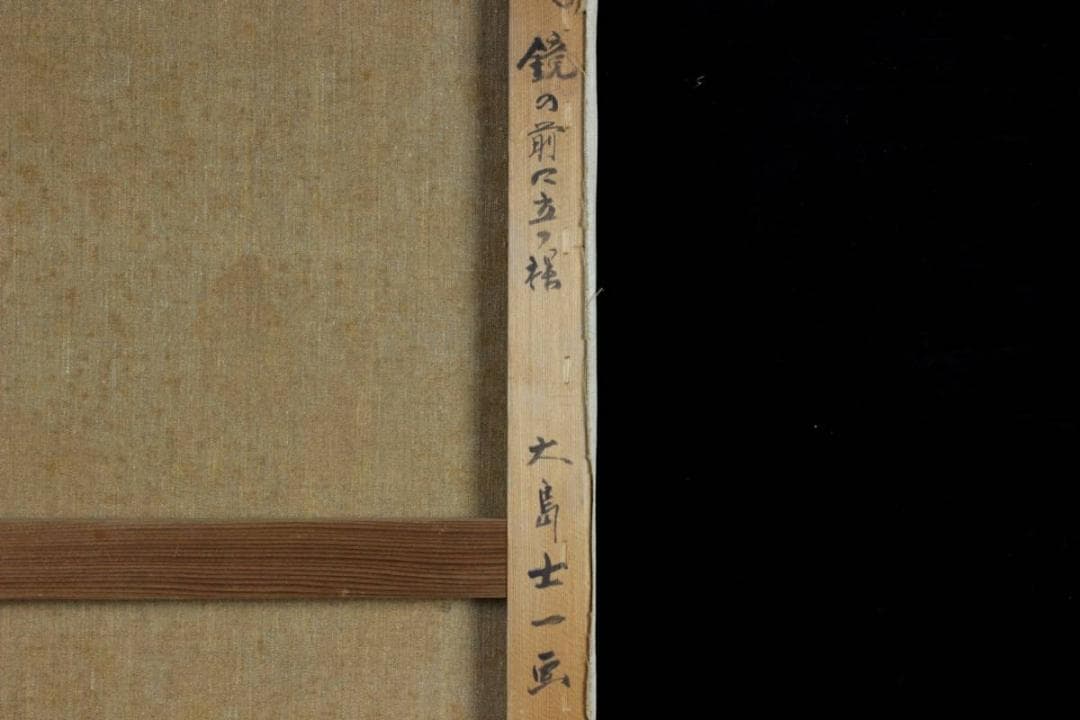 鏡の前に立つ裸
大島士一画